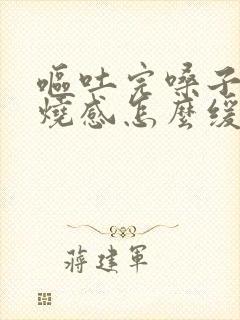 嘔吐完嗓子
燒感怎麼緩
蔣建軍